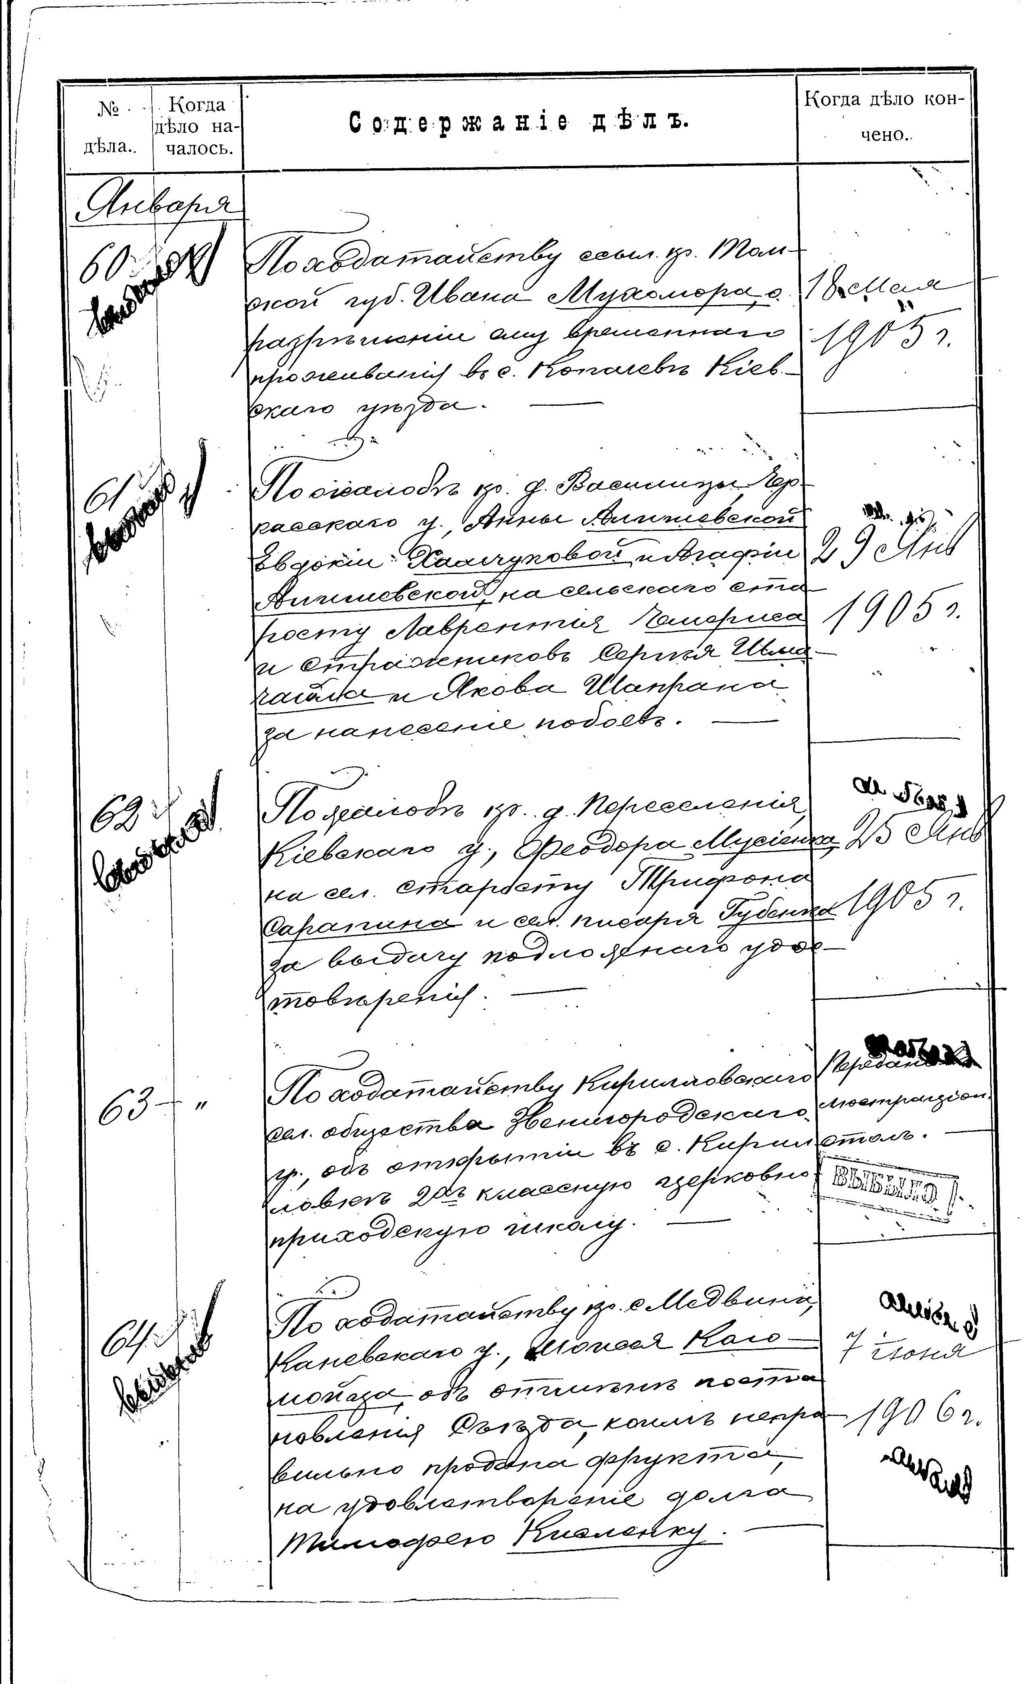 № дѣла.
Когда дѣло началось.
Содержаніе дѣлъ.
Когда дѣло кончено.
Января
60
По ходатайству ссыл. кр. Том-
ской губ. Ивана Мухомора, о
разрѣшеніи ему временнаго
проживанія въ с. Копачевѣ Кіев-
скаго уѣзда. —
18 Мая
1905 г.
61
По жалобѣ кр. д. Василицы, Чер-
касскаго у., Анны
Евдокіи и Агафіи
на сельскаго ста
росту Лаврентія Чемериса
и стражниковъ Сергѣя Шма-
чайла и Якова Шапрана
за нанесеніе побоевъ. —
29 Янв
1905 г.
62
По жалобѣ кр. д. Переселенія,
Кіевскаго у., Феодора Мусіенка,
на сел. старосту Трифона
Сарапина и сел. писаря Губенка
за выдачу подложнаго удос-
товѣренія. —
25 Янв
1905 г.
63 - "
По ходатайству Кирилловскаго
сел. общества Звенигородскаго
у., объ открытіи въ с. Кирил
ловкѣ 2хъ классную церковно
приходскую школу. —
Передано въ
люстраціон.
столъ. —
ВЫБЫЛО
64
По ходатайству кр. с. Медвина,
Каневскаго у., Моисея Каго-
мойза, объ отмѣнѣ поста
новленія Съѣзда, коимъ непра
вильно продана фрукта,
на удовлетвореніе долга
Тимофею Кисленку. —
7 іюня
1906 г.